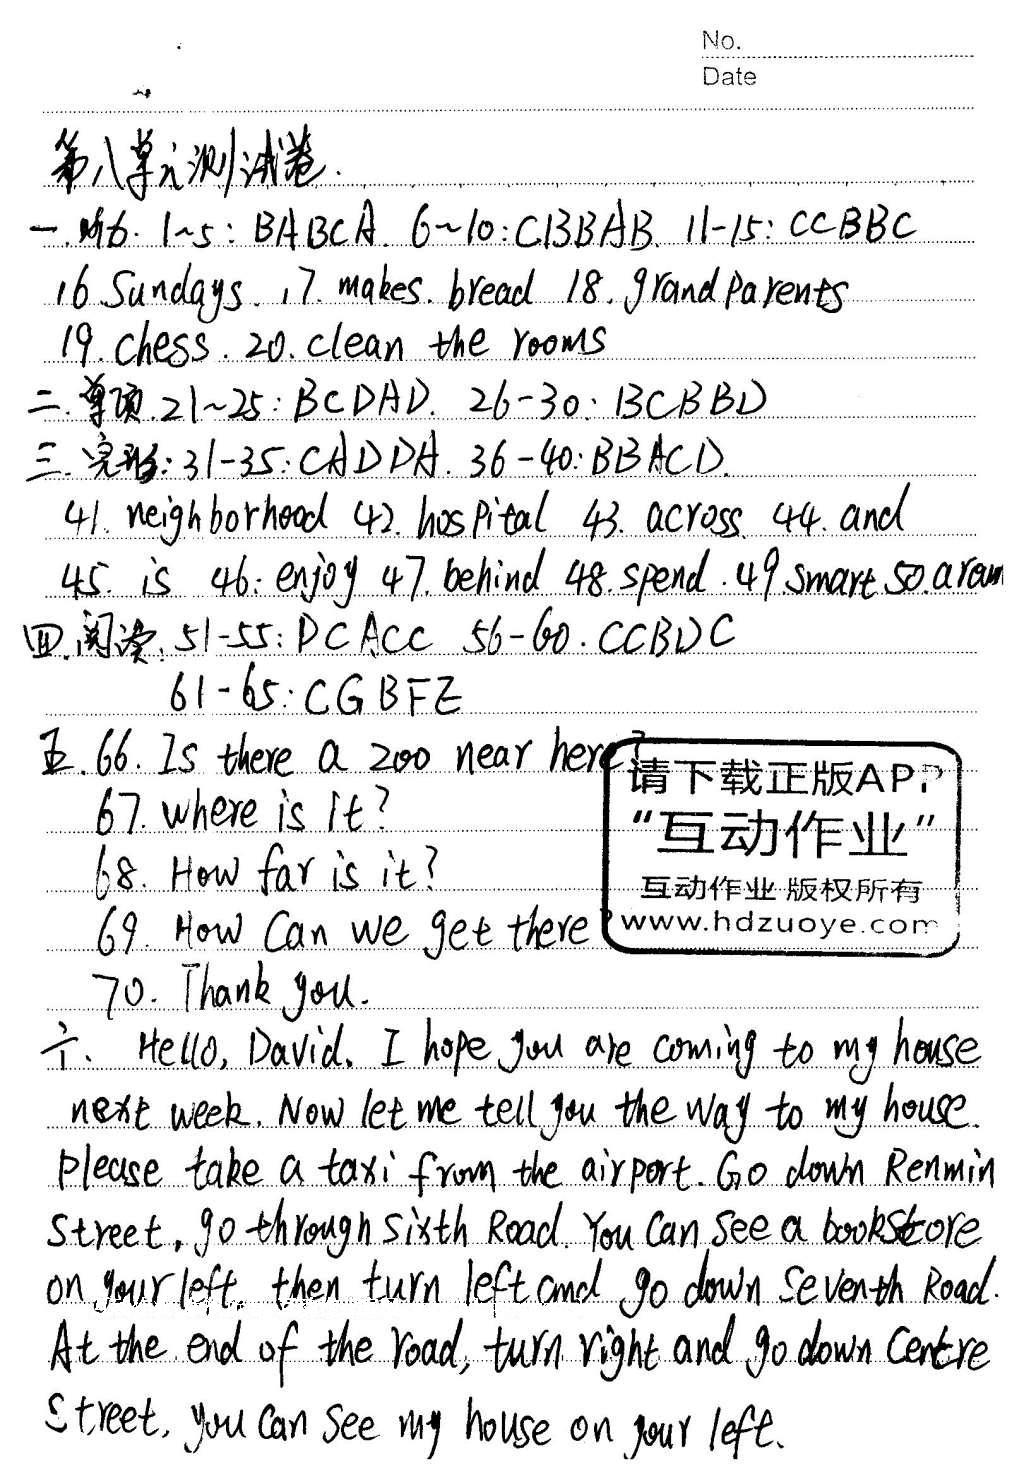 No.
Date
第八单元测试卷.
一.听力. 1~5: BABCA. 6~10: CBBAB. 11-15: CCBBC
16. Sundays. 17. makes. bread 18. grandparents
19. chess. 20. clean the rooms
二.单项. 21~25: BCDAD. 26-30: BCBBD
三.完形: 31-35: CADDA. 36-40: BBACD.
41. neighborhood 42. hospital 43. across. 44. and
45. is 46: enjoy 47. behind 48. spend. 49. smart. 50. aroun
四.阅读: 51-55: DCACC 56-60. CCBDC
61-65: CGBFE
五. 66. Is there a zoo near here?
67. where is it?
68. How far is it?
69. How can we get there?
70. Thank you.
请下载正版APP
“互动作业”
互动作业 版权所有
www.hdzuoye.com
六. Hello, David. I hope you are coming to my house
next week. Now let me tell you the way to my house.
Please take a taxi from the airport. Go down Renmin
Street, go through Sixth Road. You can see a bookstore
on your left, then turn left and go down Seventh Road.
At the end of the road, turn right and go down Centre
Street, you can see my house on your left.